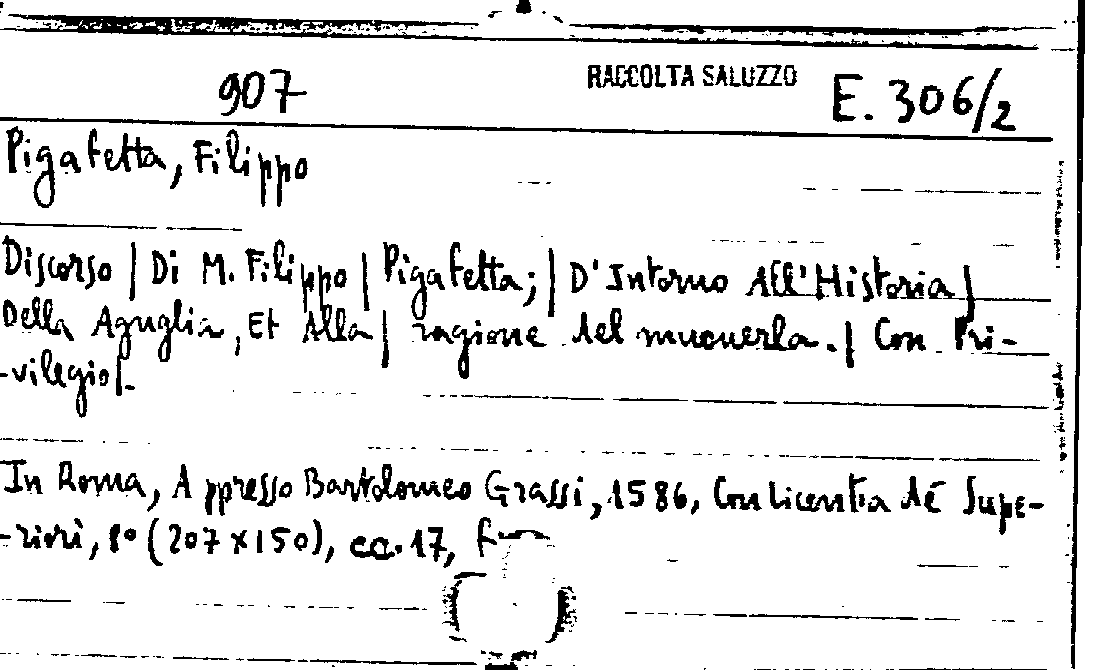 907 RACCOLTA SALUZZO E. 306/2
Pigafetta, Filippo
Discorso | Di M. Filippo | Pigafetta; | D'Intorno All'Historia |
Della Aguglia, Et Alla | ragione del muouerla. | Con Pri-
-vilegio |.
In Roma, Appresso Bartolomeo Grassi, 1586, Con licentia dé Supe-
-riori, 8° (207 x 150), cc. 17,